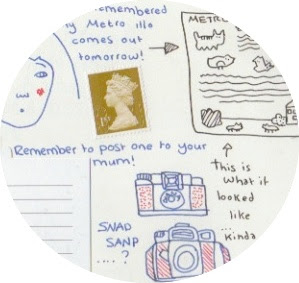 remembered
my Metro illo
comes out
tomorrow!
METRO
1st
Remember to post one to your
mum!
this is
what it
looked
like
...kinda
SNAD
SANP
....?